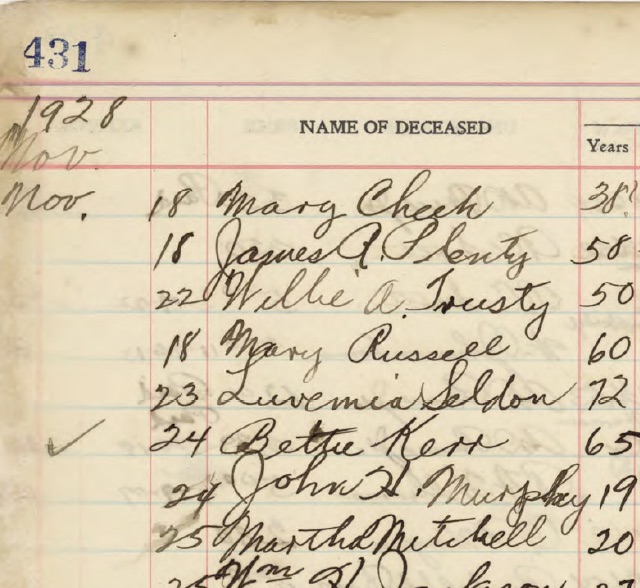 431
1928
Nov.
NAME OF DECEASED Years
Nov. 18 Mary Cheek 38
18 James A. Plenty 58
22 Willie A. Trusty 50
18 Mary Russell 60
23 Luvemia Seldon 72
24 Bettie Kerr 65
24 John H. Murphy 19
25 Martha Mitchell 20
25 Wm H. Jackson